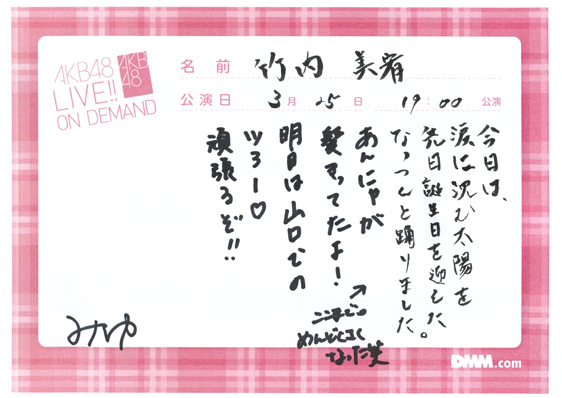 AKB48
LIVE!!
ON DEMAND
AKB
48
名前 竹内 美宥
公演日 3月25日 19:00 公演
今日は、
涙に沈む太陽を
先日誕生日を迎えた。
なっつんと踊りました。
あんにゃが
髪きってたよ!
明日は山口での
ツアー♡
頑張るぞ!!
めんどくさく
なった笑
DMM.com